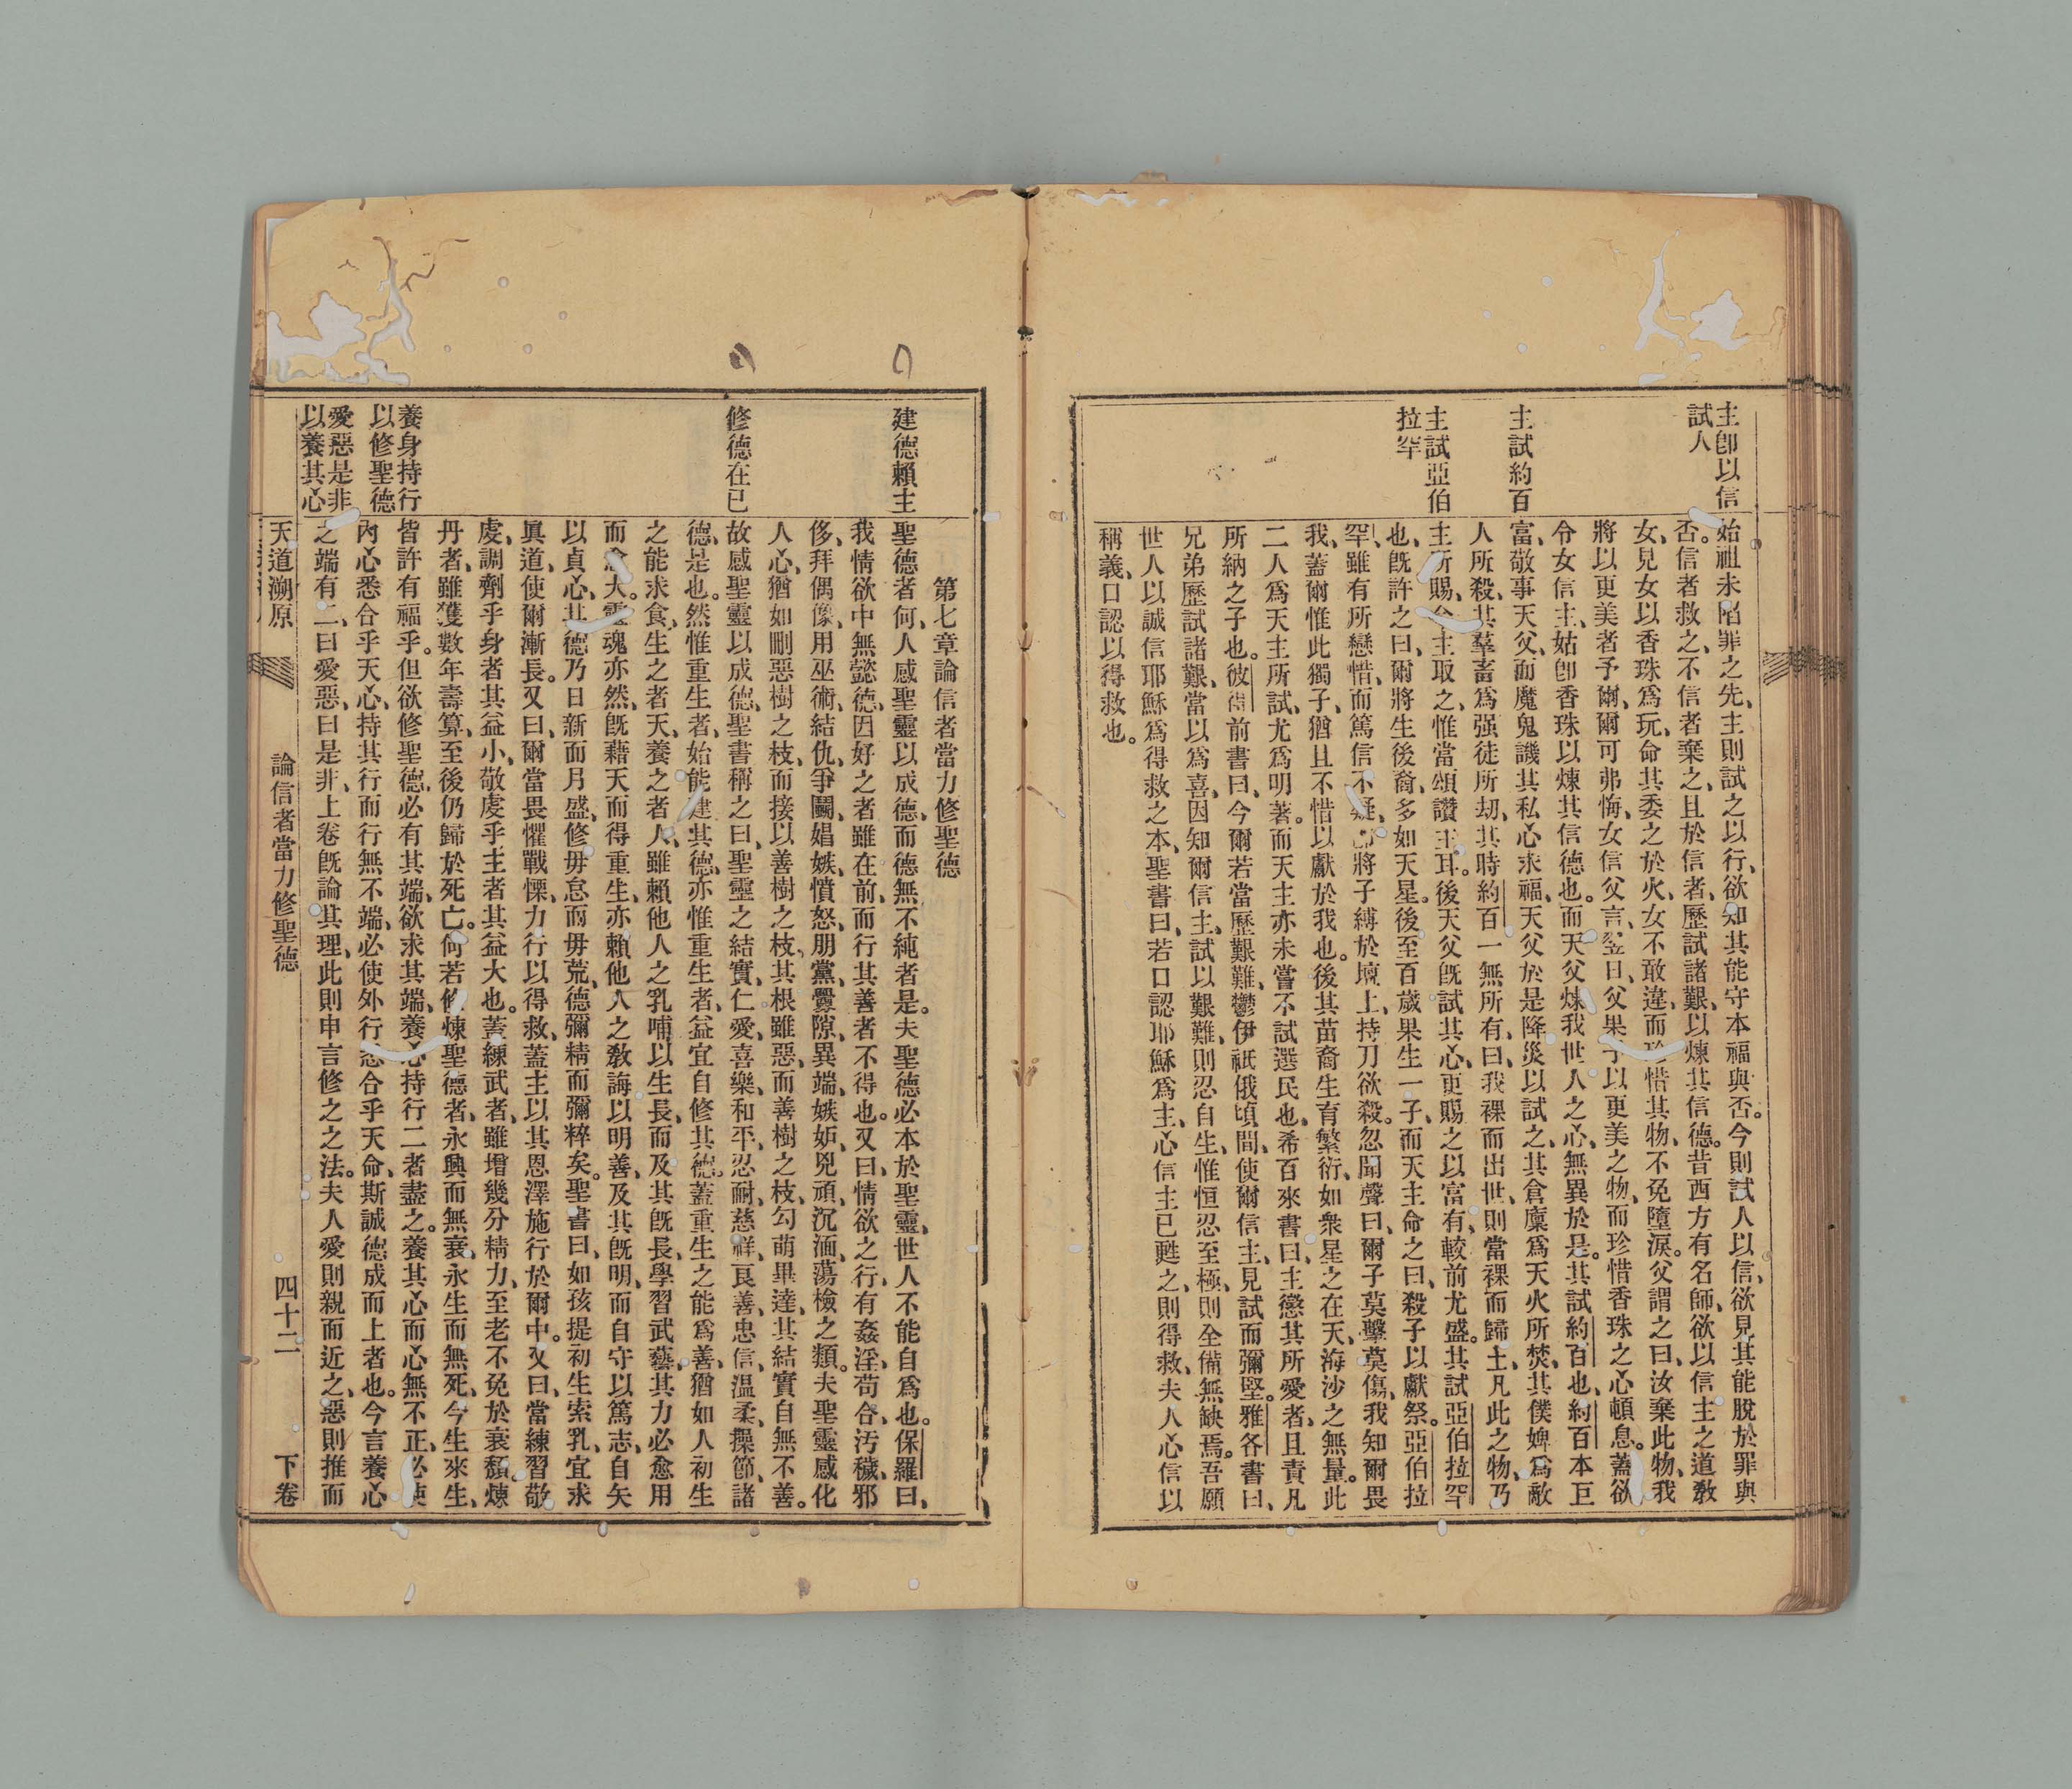 主卽以信
試人
主試約百
主試亞伯
拉罕
始祖未陷罪之先、主則試之以行、欲知其能守本福與否。今則試人以信、欲見其能脫於罪與
否。信者救之、不信者棄之、且於信者、歷試諸艱、以煉其信德。昔西方有名師、欲以信主之道敎
女、見女以香珠爲玩、命其委之於火、女不敢違、而珍惜其物、不免墮淚。父謂之曰、汝棄此物、我
將以更美者予爾、爾可弗悔、女信父言、翌日、父果予以更美之物、而珍惜香珠之心頓息。蓋欲
令女信主、姑卽香珠以煉其信德也。而天父煉我世人之心、無異於是。其試約百也、約百本巨
富、敬事天父、而魔鬼譏其私心求福、天父於是降災以試之、其倉廩爲天火所焚、其僕婢爲敵
人所殺、其羣畜爲强徒所刧、其時約百一無所有、曰、我裸而出世、則當裸而歸土、凡此之物、乃
主所賜、今主取之、惟當頌讚主耳。後天父旣試其心、更賜之以富有、較前尤盛。其試亞伯拉罕
也、旣許之曰、爾將生後裔、多如天星。後至百歲果生一子、而天主命之曰、殺子以獻祭。亞伯拉
罕、雖有所戀惜、而篤信不疑、將子縛於壇上、持刀欲殺。忽聞聲曰、爾子莫擊莫傷、我知爾畏
我、蓋爾惟此獨子、猶且不惜以獻於我也。後其苗裔生育繁衍、如衆星之在天、海沙之無量。此
二人爲天主所試、尤爲明著。而天主亦未嘗不試選民也、希百來書曰、主懲其所愛者、且責凡
所納之子也。彼得前書曰、今爾若當歷艱難、鬱伊祇俄頃間、使爾信主、見試而彌堅。雅各書曰、
兄弟歷試諸艱、當以爲喜、因知爾信主、試以艱難、則忍自生、惟恒忍至極、則全備無缺焉。吾願
世人以誠信耶穌爲得救之本、聖書曰、若口認耶穌爲主、心信主已甦之、則得救、夫人心信以
稱義、口認以得救也。
建德賴主
修德在已
養身持行
以修聖德
愛惡是非
以養其心
第七章論信者當力修聖德
聖德者何、人感聖靈以成德、而德無不純者是。夫聖德必本於聖靈、世人不能自爲也。保羅曰、
我情欲中無懿德、因好之者雖在前、而行其善者不得也。又曰、情欲之行、有姦淫、苟合、汚穢、邪
侈、拜偶像、用巫術、結仇、爭鬭、娼嫉、憤怒、朋黨、釁隙、異端、嫉妒、兇頑、沉湎、蕩檢之類。夫聖靈感化
人心、猶如刪惡樹之枝、而接以善樹之枝、其根雖惡、而善樹之枝、勾萌畢達、其結實自無不善。
故感聖靈以成德、聖書稱之曰、聖靈之結實、仁愛、喜樂、和平、忍耐、慈祥、良善、忠信、温柔、操節、諸
德、是也。然惟重生者、始能建其德、亦惟重生者、益宜自修其德。蓋重生之能爲善、猶如人初生
之能求食、生之者天、養之者人、雖賴他人之乳哺以生長、而及其旣長、學習武藝、其力必愈用
而愈大。靈魂亦然、旣藉天而得重生、亦賴他人之敎誨以明善、及其旣明、而自守以篤志、自矢
以貞心、其德乃日新而月盛、修毋怠而毋荒、德彌精而彌粹矣。聖書曰、如孩提初生索乳、宜求
眞道、使爾漸長。又曰、爾當畏懼戰慄、力行以得救、蓋主以其恩澤施行於爾中。又曰、當練習敬
虔、調劑乎身者其益小、敬虔乎主者其益大也。蓋練武者、雖增幾分精力、至老不免於衰頹。煉
丹者、雖獲數年壽算、至後仍歸於死亡。何若修煉聖德者、永興而無衰、永生而無死、今生來生、
皆許有福乎。但欲修聖德、必有其端、欲求其端、養心持行二者盡之。養其心而心無不正、必使
內心悉合乎天心、持其行而行無不端、必使外行悉合乎天命、斯誠德成而上者也。今言養心
之端有二、曰愛惡、曰是非、上卷旣論其理、此則申言修之之法。夫人愛則親而近之、惡則推而
天道溯原
論信者當力修聖德
四十二
下卷